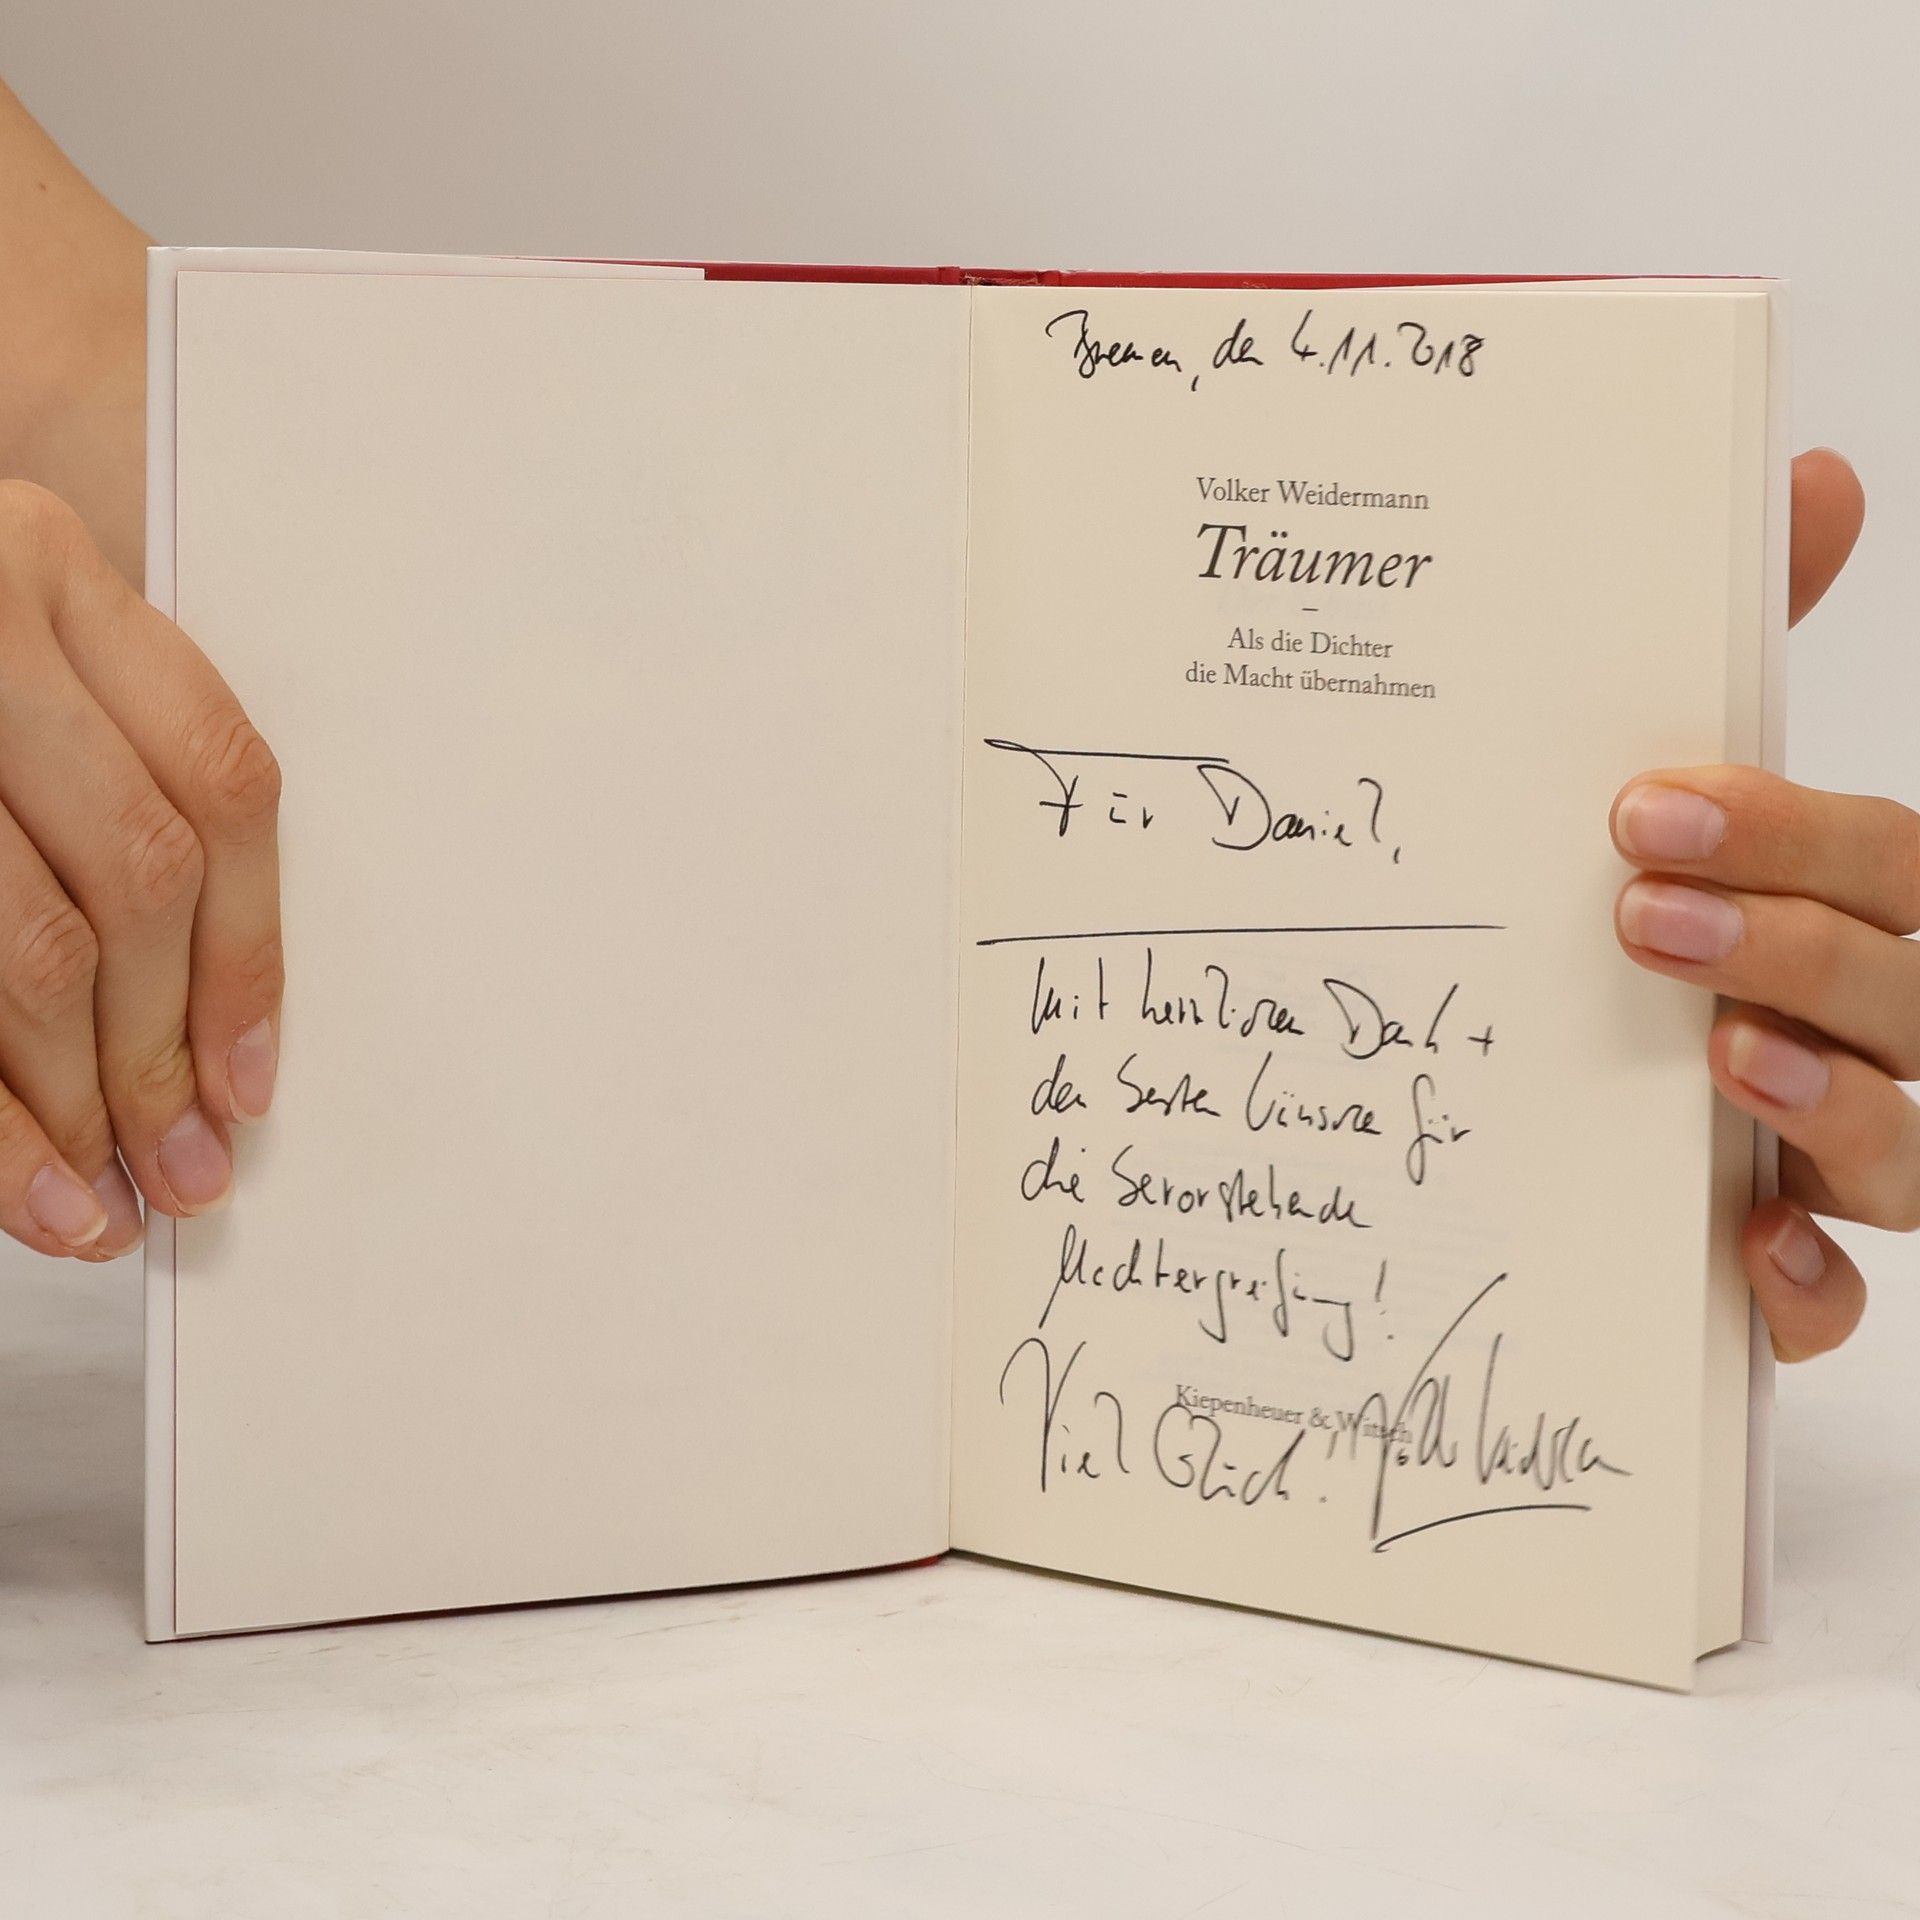 Bremen, den 4.11.2018
Volker Weidermann
Träumer
–
Als die Dichter
die Macht übernahmen
Für Daniel,
Mit herzlichem Dank +
den besten Wünschen für
die bevorstehende
Machtergreifung!
Kiepenheuer & Witsch
Viel Glück! Volker Weidermann